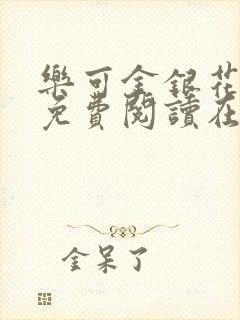 樂可金銀花
免費閱讀在
金呆了